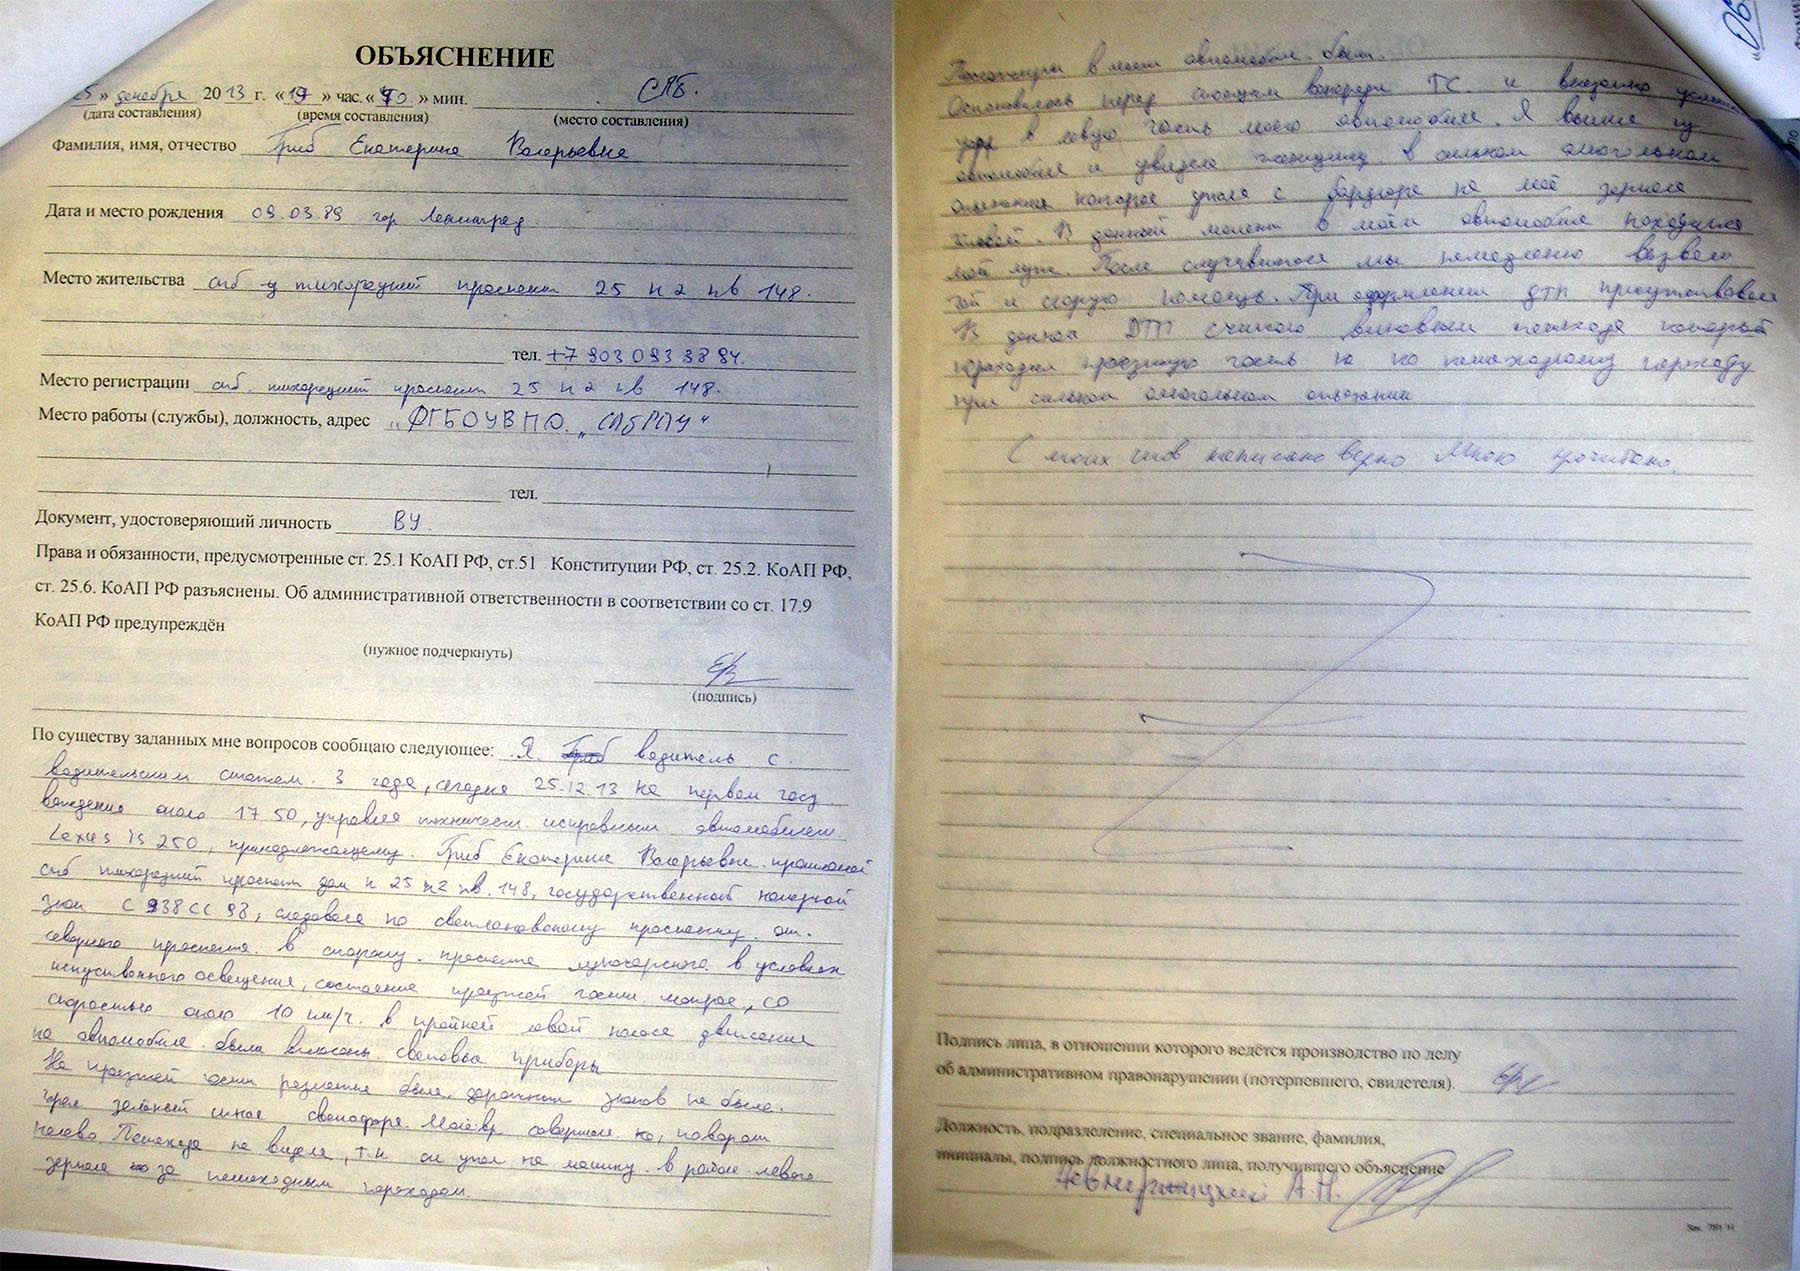 ОБЪЯСНЕНИЕ
25 » декабря 2013 г. « » час. « » мин. СПБ.
(дата составления) (время составления) (место составления)
Фамилия, имя, отчество Гриб Екатерина Валерьевна
Дата и место рождения 09.03.89 гор Ленинград
Место жительства спб тихорецкий проспект 25 к 2 кв 148.
тел. +7 903 093 38 94.
Место регистрации спб. тихорецкий проспект 25 к 2 кв 148.
Место работы (службы), должность, адрес „ФГБОУВПО. „СПбГПУ"
тел.
Документ, удостоверяющий личность ВУ.
Права и обязанности, предусмотренные ст. 25.1 КоАП РФ, ст.51 Конституции РФ, ст. 25.2. КоАП РФ,
ст. 25.6. КоАП РФ разъяснены. Об административной ответственности в соответствии со ст. 17.9
КоАП РФ предупреждён
(нужное подчеркнуть)
(подпись)
По существу заданных мне вопросов сообщаю следующее: Я Гриб водитель с
водительским стажем 3 года, сегодня 25.12.13 на первом году
вождения около 17 50, управляя технически исправным автомобилем
Lexus is 250, принадлежащему Гриб Екатерине Валерьевне
спб тихорецкий проспект дом 25 к2 кв. 148, государственной номерной
знак С 938 СС 98, следовала по светлановскому проспекту от
северного проспекта в сторону проспекта луначарского в условиях
искуственного освещения, состояние проезжей части мокрое, со
скоростью около 10 км/ч. в крайней левой полосе движения
на автомобиле были включены световые приборы
На проезжей части разметка была, дорожных знаков не было.
горел зелёный сигнал светофора. Манёвр совершала поворот
налево. Пешехода не видела, т.к он упал на машину в районе левого
зеркала за пешеходным переходом.
Пассажиры в моём автомобиле были.
Остановилась перед стоящим впереди ТС. и внезапно услышала
удар в левую часть моего автомобиля. Я вышла из
автомобиля и увидела женщину в сильном алкогольном
опьянении которое упала с бардюра на моё зеркало
головой. В данный момент в моём автомобиле находился
мой муж. После случившегося мы немедленно вызвали
гаи и скорую помощь. При оформлении дтп присутствовали
В данном ДТП считаю виновным пешехода который
переходил проезжую часть не по пешеходному переходу
при сильном алкогольном опьянении
С моих слов написано верно Мною прочитано.
Подпись лица, в отношении которого ведётся производство по делу
об административном правонарушении (потерпевшего, свидетеля).
Должность, подразделение, специальное звание, фамилия,
инициалы, подпись должностного лица, получившего объяснение
А.Н.